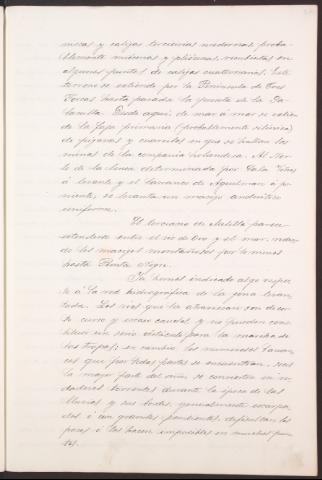 niscas y calizas terciarias modernas, proba-
blemente miocenas y pliocenas, recubiertas en
algunos puntos de calizas cuaternarias. Este
terreno se extiende por la Península de Tres
Forcas hasta pasada la punta de la Ga-
Desde aquí, de mar á mar se extien
de la faja primaria (probablemente silúrica)
de pizarras y cuarcitas en que se hallan las
minas de la compañía holandesa. Al Nor-
te de la línea determinada por Cala
á levante y el barranco de á po-
niente, se levanta un macizo andesítico
uniforme.
El terciario de Melilla parece
extenderse entre el río de Oro y el mar,
de los macizos montañosos por lo menos
hasta Punta Negra.
Ya hemos indicado algo respec
to á la red hidrográfica de la zona
Los ríos que la atraviesan son de cor
to curso y escaso caudal y no pueden cons
tituir un serio obstáculo para la marcha de
las tropas; en cambio los numerosos barran
cos que por todas partes se encuentran, secos
la mayor parte del año, se convierten en ver
daderos torrentes durante la época de las
lluvias y sus bordes, generalmente escarpa
dos ó con grandes pendientes, dificultan los
pasos ó los hacen imposibles en muchos pun
tos.